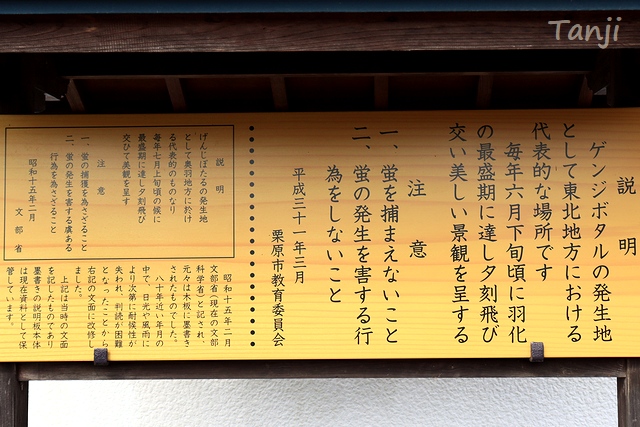 Tanji
説明
ゲンジボタルの発生地
として東北地方における
代表的な場所です
毎年六月下旬頃に羽化
の最盛期に達し夕刻飛び
交い美しい景観を呈する
注意
一、蛍を捕まえないこと
二、蛍の発生を害する行
為をしないこと
平成三十一年三月
栗原市教育委員会
説明
げんじぼたるの発生地
として奥羽地方に於け
る代表的のものなり
毎年七月上旬頃の候に
最盛期に達し夕刻飛び
交ひて美観を呈す
注意
一、蛍の捕獲を為さざること
二、蛍の発生を害する虞ある
行為を為さざること
昭和十五年二月
文部省
昭和十五年二月
文部省(現在の文部
科学省)と記され、
元々は木板に墨書き
されたものでした。
八十年近い年月の
中で、日光や風雨に
より次第に耐候性が
失われ、判読が困難
となったことから
右記の文面に改修し
ました。
上記は当時の文面
を記したものであり
墨書きの説明板本体
は現在資料として保
管しています。